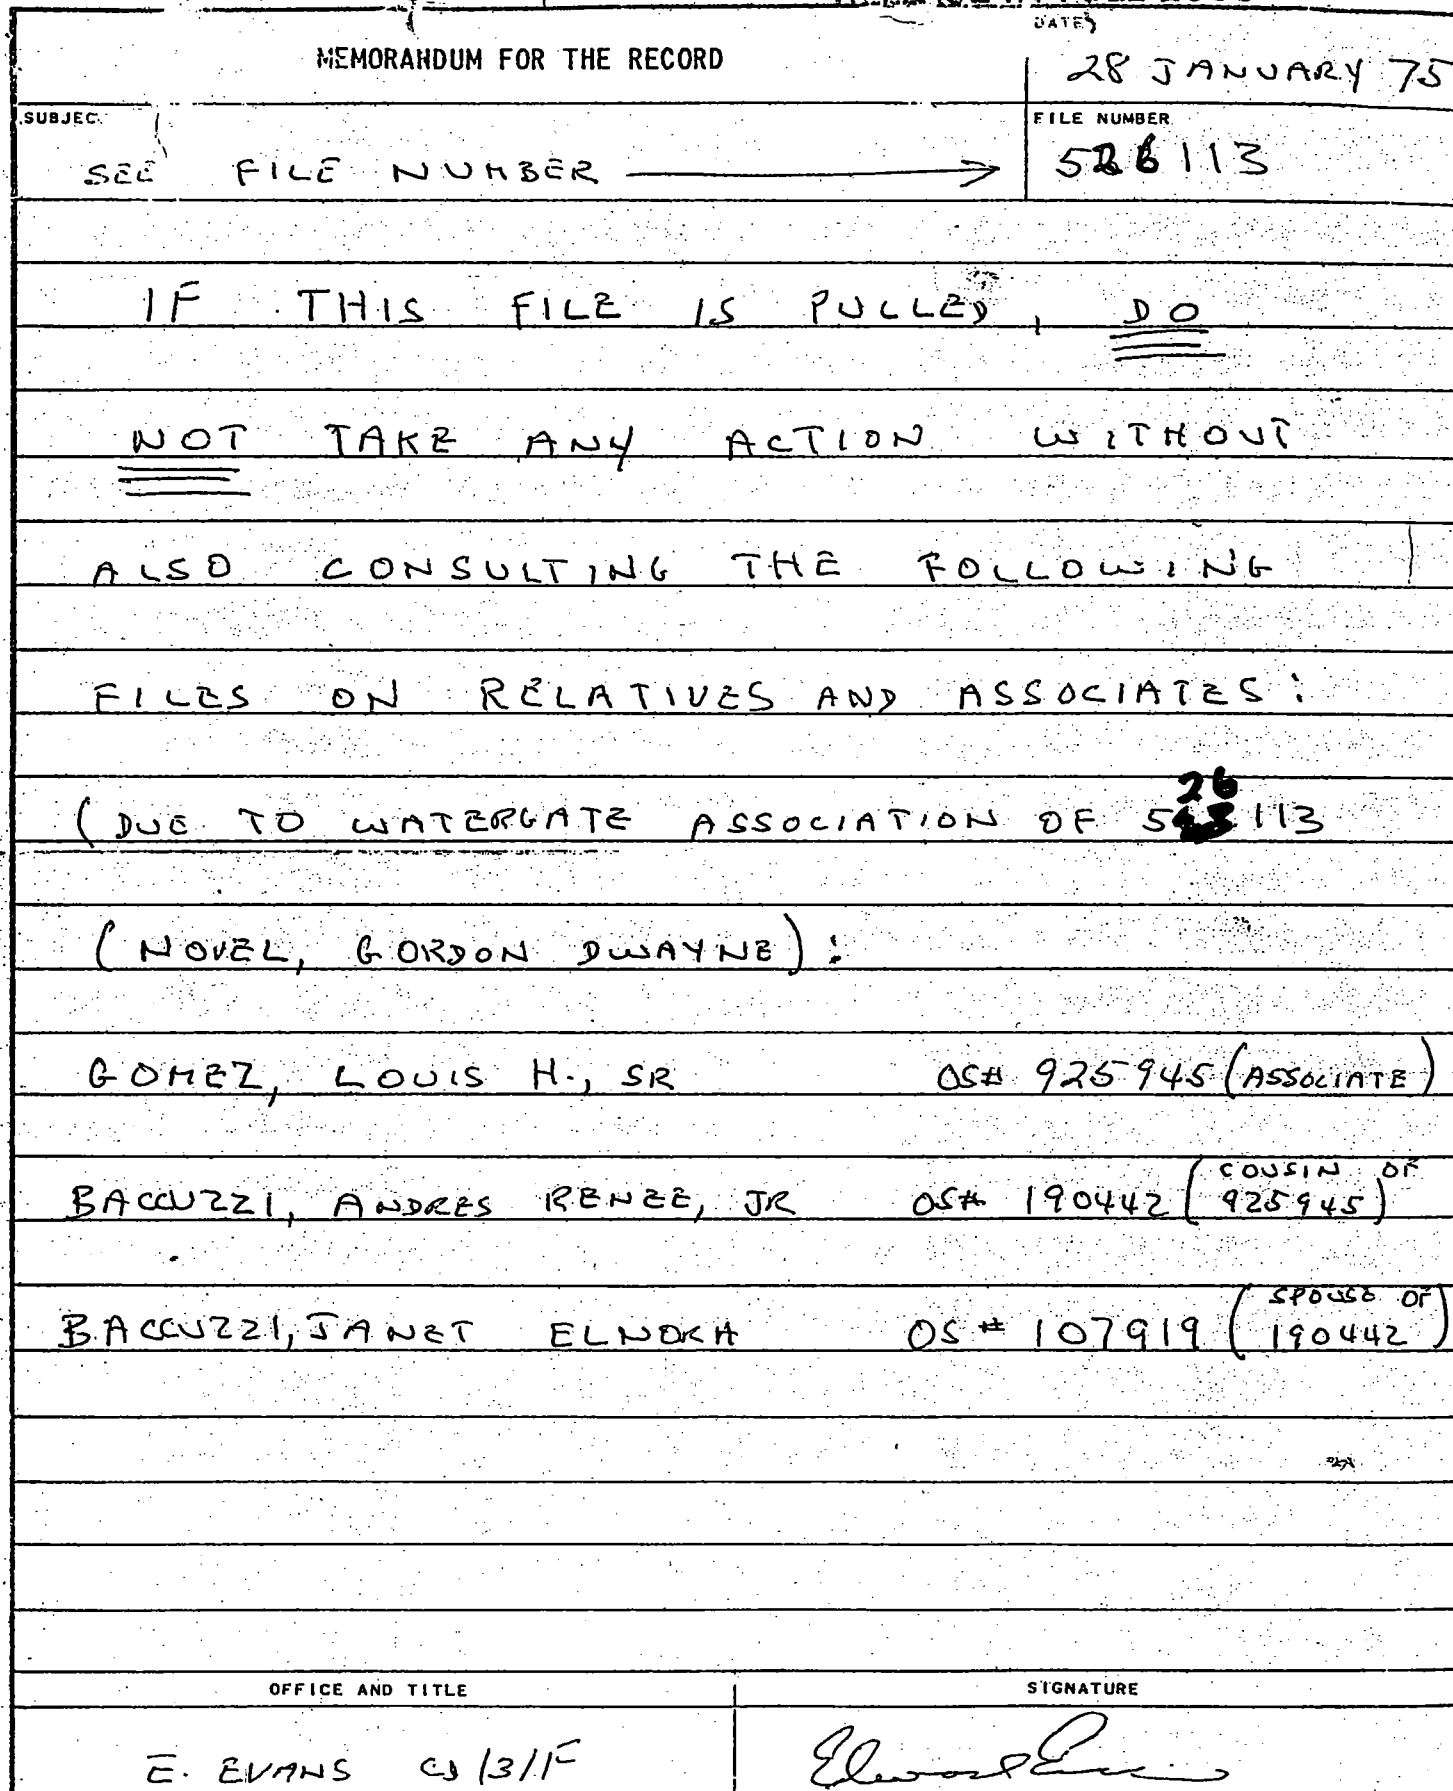 DATE
MEMORANDUM FOR THE RECORD
28 JANUARY 75
SUBJEC
FILE NUMBER
SEE FILE NUMBER
526113
IF THIS FILE IS PULLED, DO
NOT TAKE ANY ACTION WITHOUT
ALSO CONSULTING THE FOLLOWING
FILES ON RELATIVES AND ASSOCIATES:
(DUE TO WATERGATE ASSOCIATION OF 526113
(NOVEL, GORDON DWAYNE):
GOMEZ, LOUIS H., SR OS# 925945 (ASSOCIATE)
BACCUZZI, ANDRES RENEE, JR OS# 190442 (COUSIN OF 925945)
BACCUZZI, JANET ELNORA OS# 107919 (SPOUSE OF 190442)
OFFICE AND TITLE
SIGNATURE
E. EVANS /3/IF